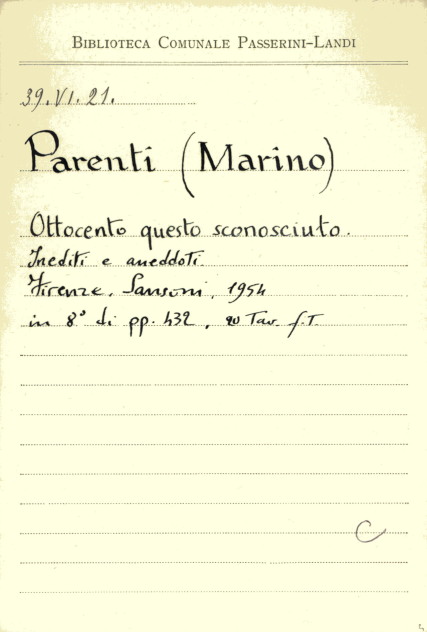 BIBLIOTECA COMUNALE PASSERINI-LANDI
39.VI.21.
Parenti (Marino)
Ottocento questo sconosciuto.
Inediti e aneddoti.
Firenze, Sansoni, 1954
in 8° di pp. 432, Tav. f.T.
C